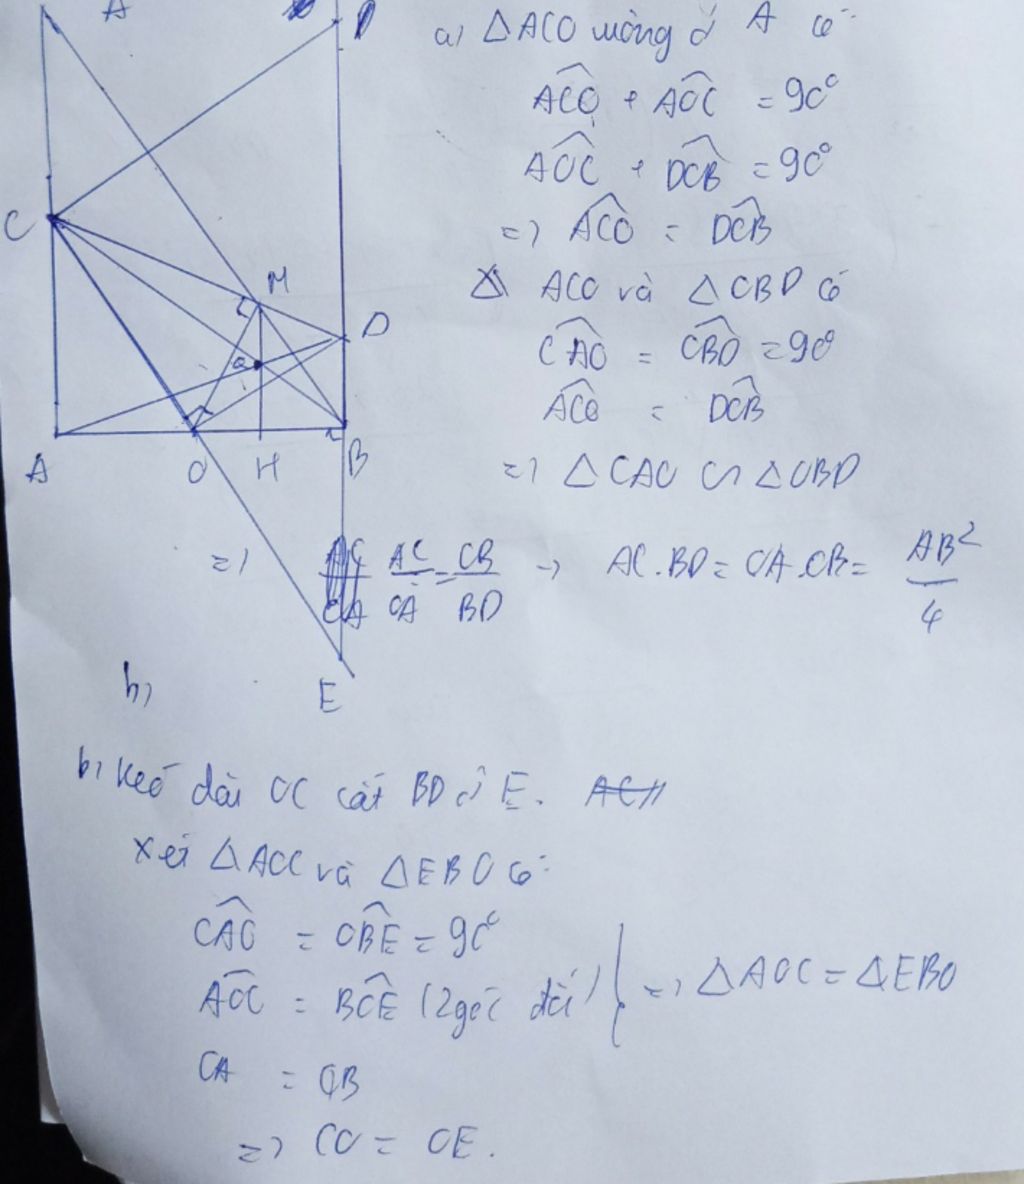 A
D
C
M
D
Q
A
O
H
B
E
a) ΔACO vuông ở A có
ACO + AOC = 90°
AOC + DOB = 90°
=) ACO = DOB
Δ ACO và ΔOBD có
CAO = OBD = 90°
ACO = DOB
=) ΔCAO ∽ ΔOBD
=) AC/OA = OB/BD → AC.BD = OA.OB = AB²/4
b)
b, Kéo dài OC cắt BD ở E.
Xét ΔAOC và ΔEBO có:
CAO = OBE = 90°
AOC = BOE (2 góc đ đ)
=) ΔAOC = ΔEBO
OA = OB
=) CO = OE.